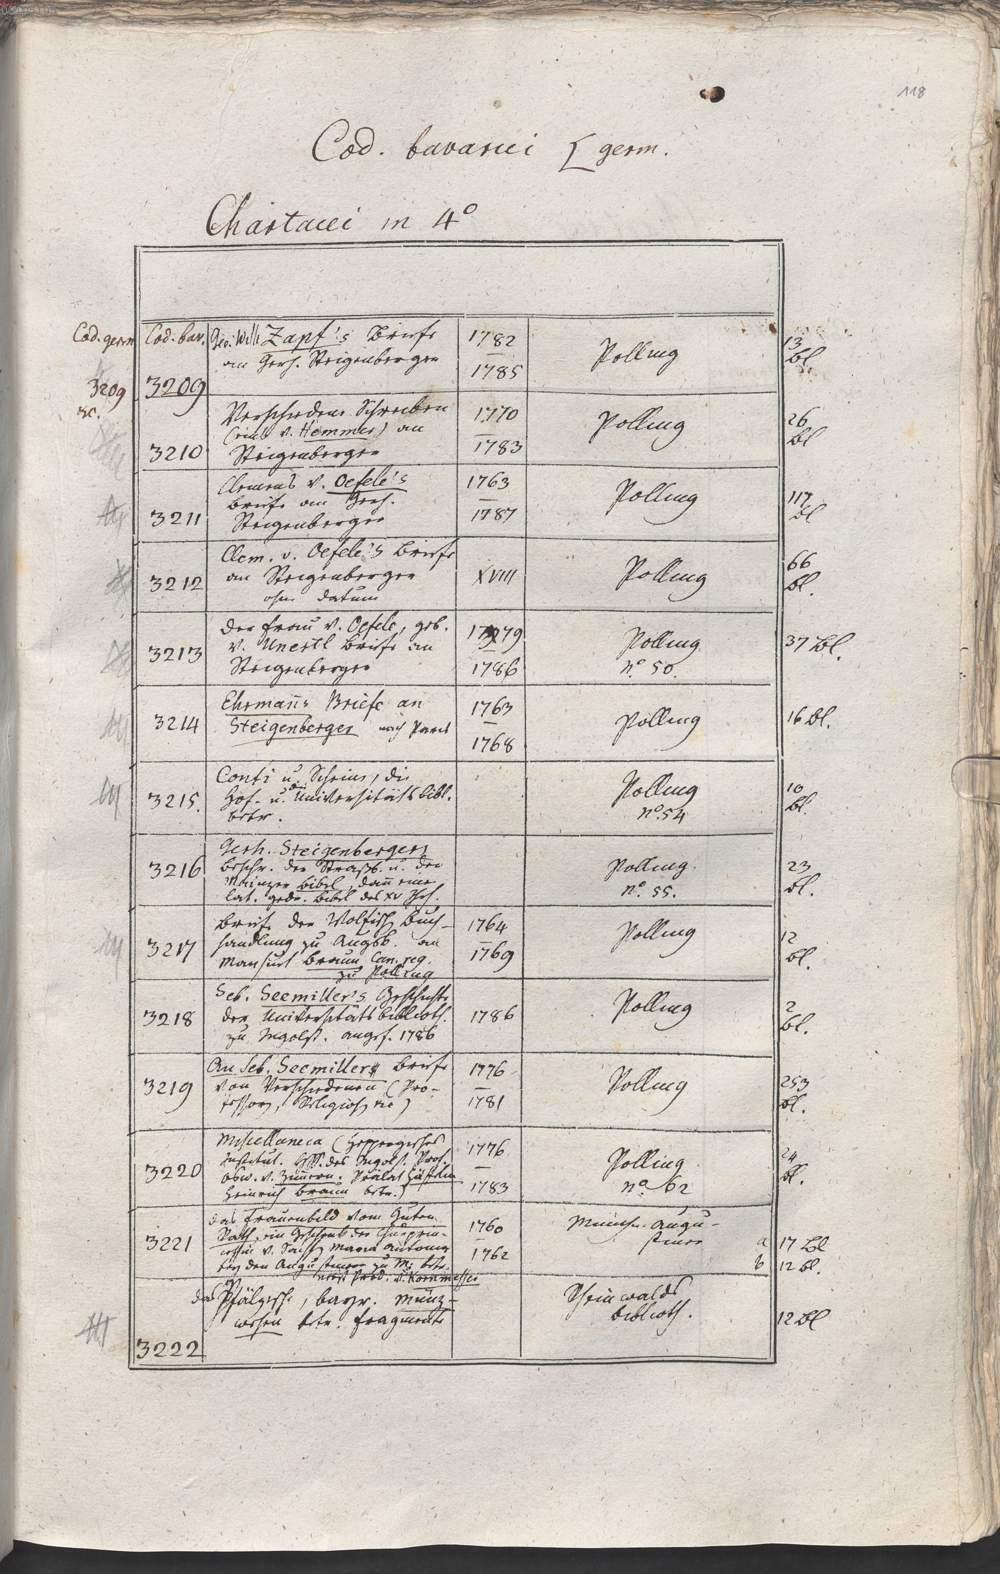 118
Cod. bavarici [germ.
Chartacei in 4°
Cod. germ
3209
Cod. bav.
3209
Geo. Wilh. Zapf's Briefe
an Gerh. Steigenberger
1782
—
1785
Polling
13
Bl.
3210
Verschiedene Schreiben
v. Hemmer) an
Steigenberger
1770
—
1783
Polling
26
Bl
3211
Clemens v. Oefele's
Briefe an Gerh.
Steigenberger
1763
—
1787
Polling
117
Bl
3212
Clem. v. Oefele's Briefe
an Steigenberger
ohne datum
XVIII
Polling
66
Bl.
3213
Der Frau v. Oefele, geb.
v. Unertl Briefe an
Steigenberger
1779
—
1786
Polling
n° 50.
37 Bl.
3214
Ehrmann's Briefe an
Steigenberger nach Paris
1763
—
1768
Polling
16 Bl.
3215.
Conti u. Scheine, die
Hof- u. Universitäts bibl.
betr.
Polling
n° 54
10
Bl.
3216
Gerh. Steigenbergers
Beschr. der Straßb. u. der
Mainzer Bibel, dann einer
lat. gedr. Bibel des XV Jhh.
Polling.
n° 55.
23
Bl.
3217
Briefe der Wolfisch. Buch-
handlung zu Augsb. an
Mansuet Braun Can. reg.
zu Polling
1764
—
1769
Polling
12
Bl.
3218
Seb. Seemiller's Geschichte
der Universitäts biblioth.
zu Ingolst. angef. 1786
1786
Polling
2
Bl.
3219
An Seb. Seemiller Briefe
von Verschiedenen (Pro-
fessoren, Religiosen etc)
1776
—
1781
Polling
253
Bl.
3220
Miscellanea
Institut. des Ingolst. Prof.
v. Zimmern. Prälat
Heinrich Braun betr.)
1776
—
1783
Polling
n° 62
24
Bl.
3221
das Frauenbild vom Guten
Rath, ein Geschenk der Churprin-
zessin v. Sachsen Maria Antonia
bey den Augustinern zu M. betr.
1760
—
1762
Münch. Augu-
stiner
a 17 Bl
b 12 Bl.
3222
nebst Prod. u. Kommissei
das Pfälzische, bayr. Münz-
wesen betr. Fragmente
Scheinwalds
biblioth.
12 Bl